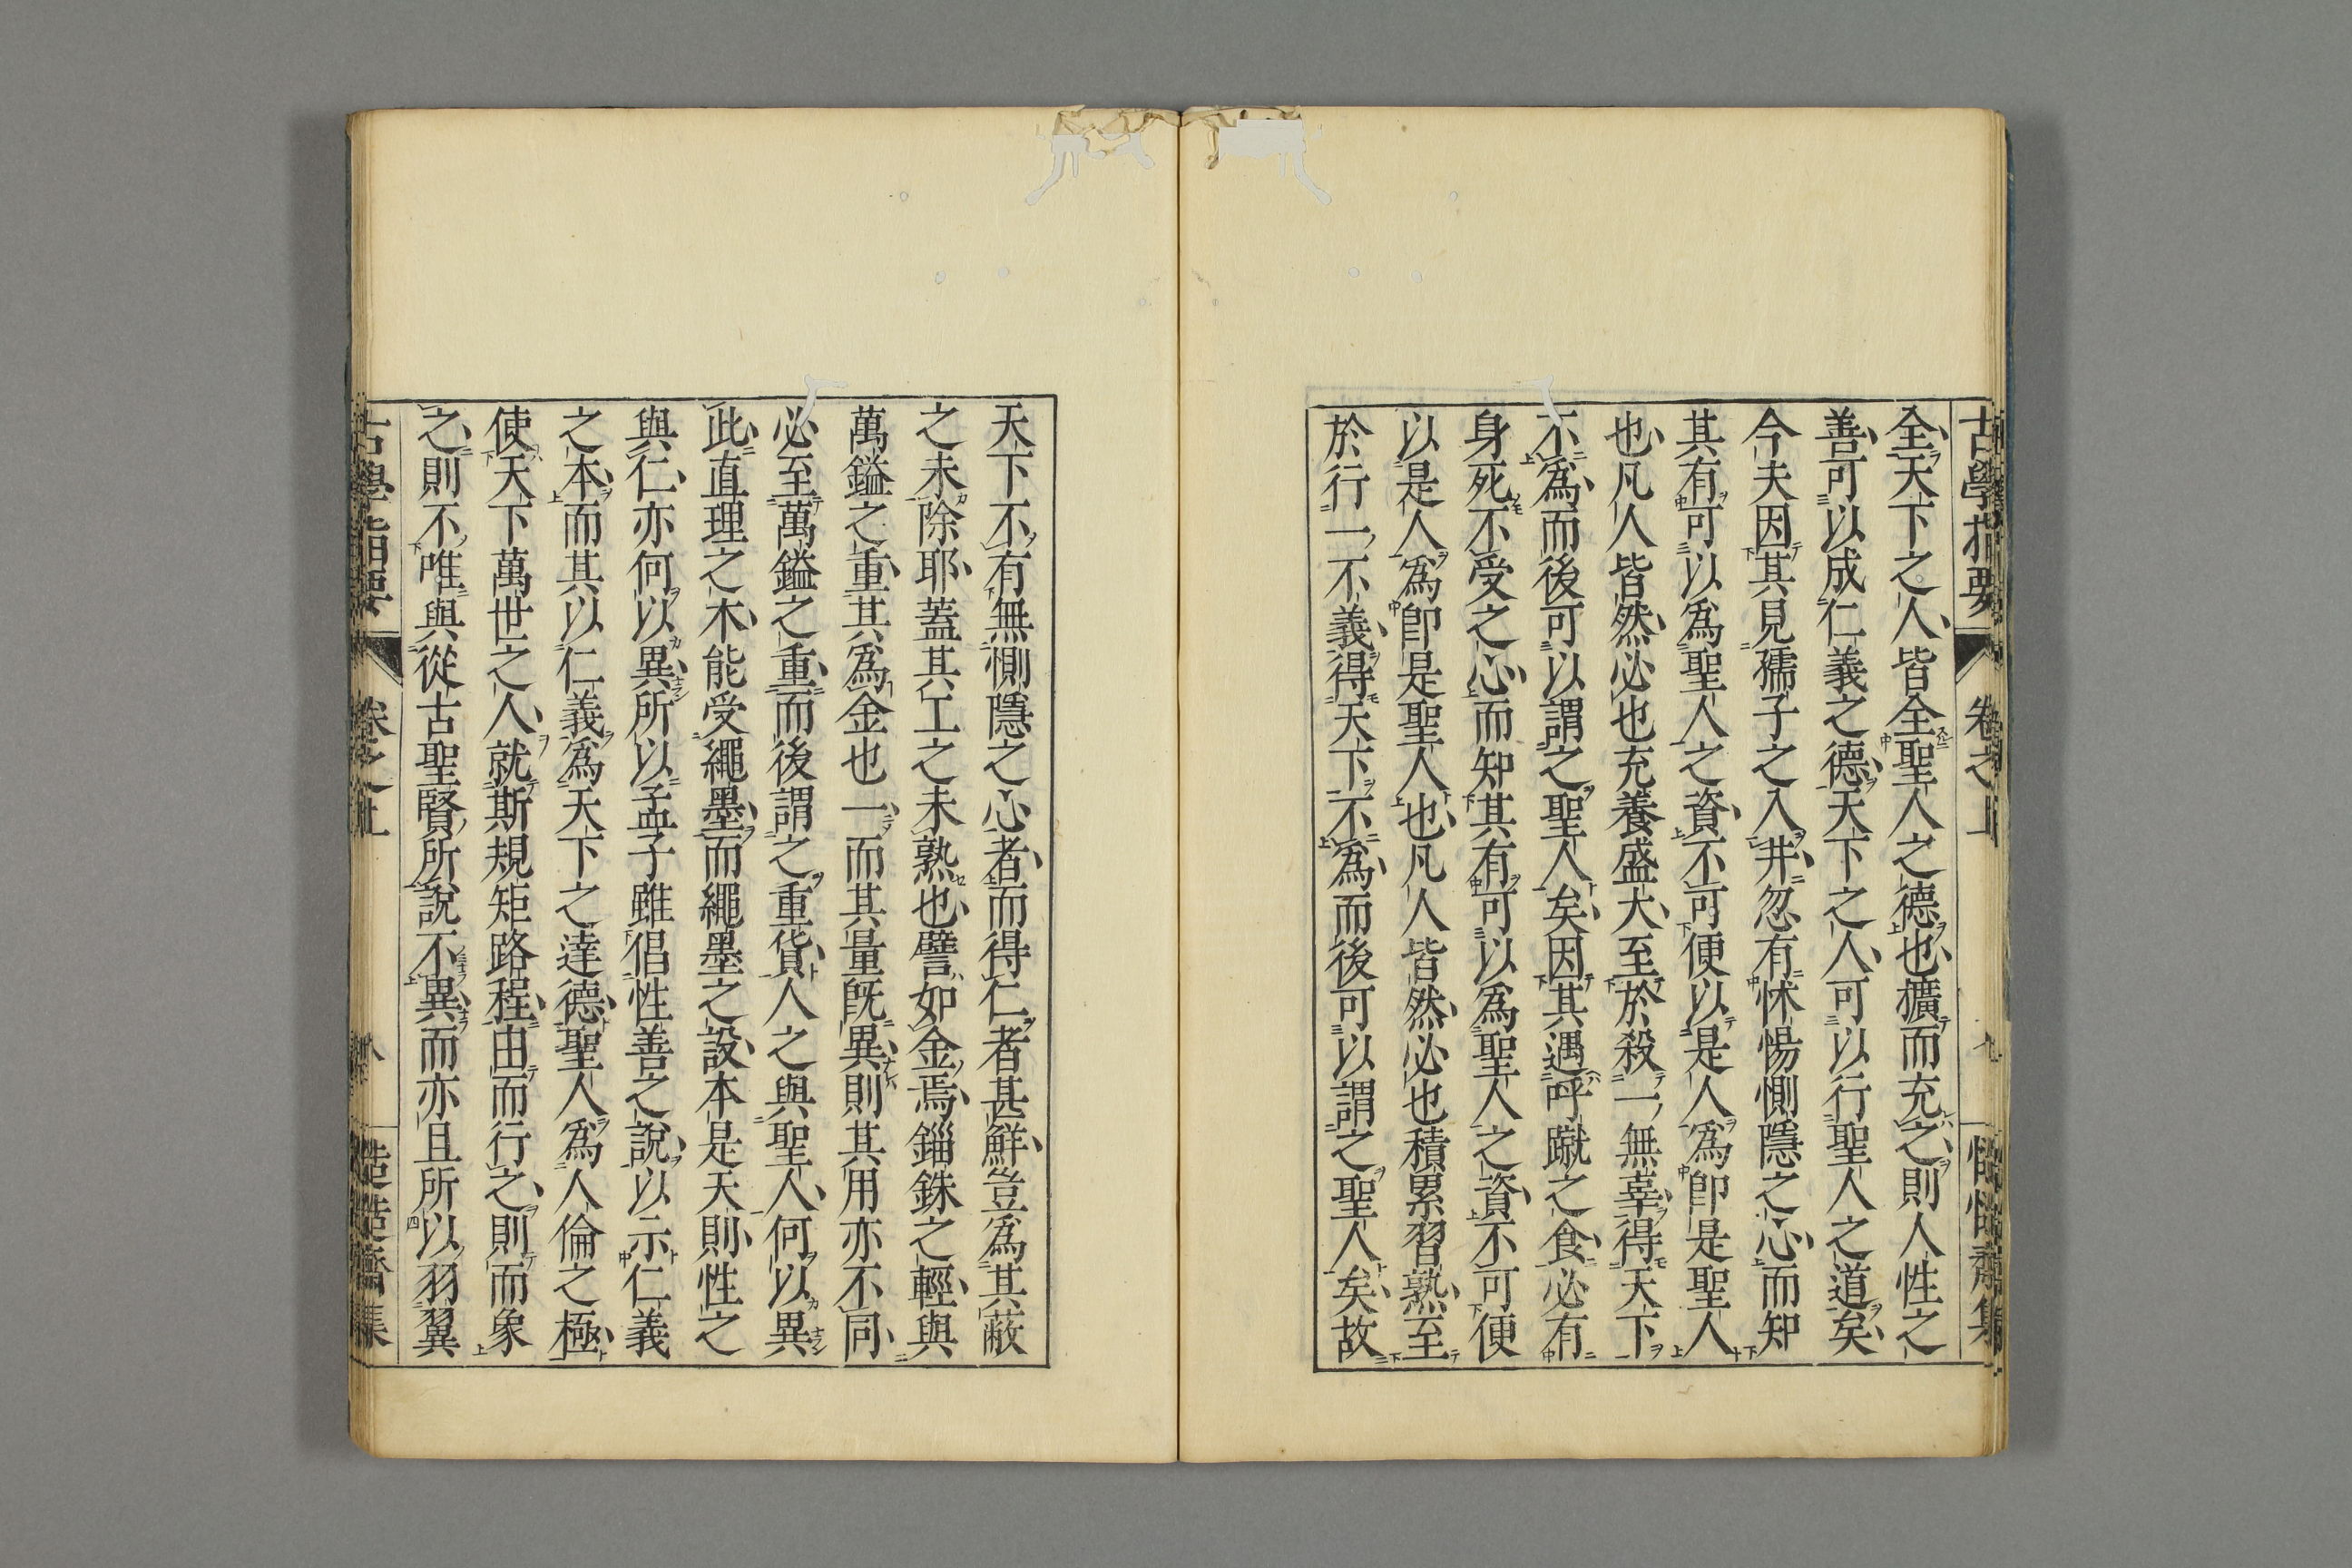 古學指要 卷之上 慥慥齋集
全天下之人皆全聖人之德也擴而充之則人性之
善可以成仁義之德天下之人可以行聖人之道矣
今夫因其見孺子之入井忽有怵惕惻隱之心而知
其有可以爲聖人之資不可便以是人爲卽是聖人
也凡人皆然必也充養盛大至於殺一無辜得天下
不爲而後可以謂之聖人矣因其遇呼蹴之食必有
身死不受之心而知其有可以爲聖人之資不可便
以是人爲卽是聖人也凡人皆然必也積累習熟至
於行一不義得天下不爲而後可以謂之聖人矣故
天下不有無惻隱之心者而得仁者甚鮮豈爲其蔽
之未除耶蓋其工之未熟也譬如金焉錙銖之輕與
萬鎰之重其爲金也一而其量旣異則其用亦不同
必至萬鎰之重而後謂之重貨人之與聖人何以異
此直理之木能受繩墨而繩墨之設本是天則性之
與仁亦何以異所以孟子雖倡性善之說以示仁義
之本而其以仁義爲天下之達德聖人爲人倫之極
使天下萬世之人就斯規矩路程由而行之則而象
之則不唯與從古聖賢所說不異而亦且所以羽翼
古學指要 卷之上 八 慥慥齋集